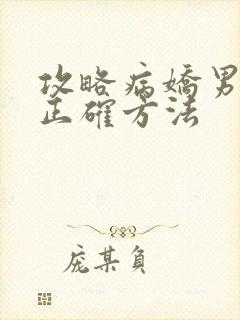 攻略病嬌男
正確方法
庞某負